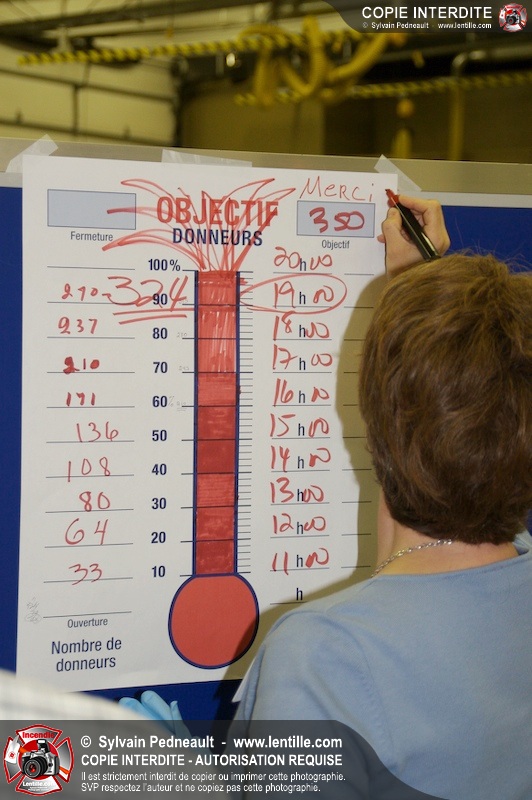 COPIE INTERDITE
© Sylvain Pedneault - www.lentille.com
MERCi
OBJECTIF
DONNEURS
350
Fermeture
Objectif
100% 20h00
324 90 19h00
237 80 18h00
210 70 17h00
191 60 16h00
136 50 15h00
108 40 14h00
80 30 13h00
64 20 12h00
33 10 11h00
h
Ouverture
Nombre de
donneurs
Incendie
© Sylvain Pedneault - www.lentille.com
COPIE INTERDITE - AUTORISATION REQUISE
Il est strictement interdit de copier ou imprimer cette photographie.
SVP respectez l'auteur et ne copiez pas cette photographie.